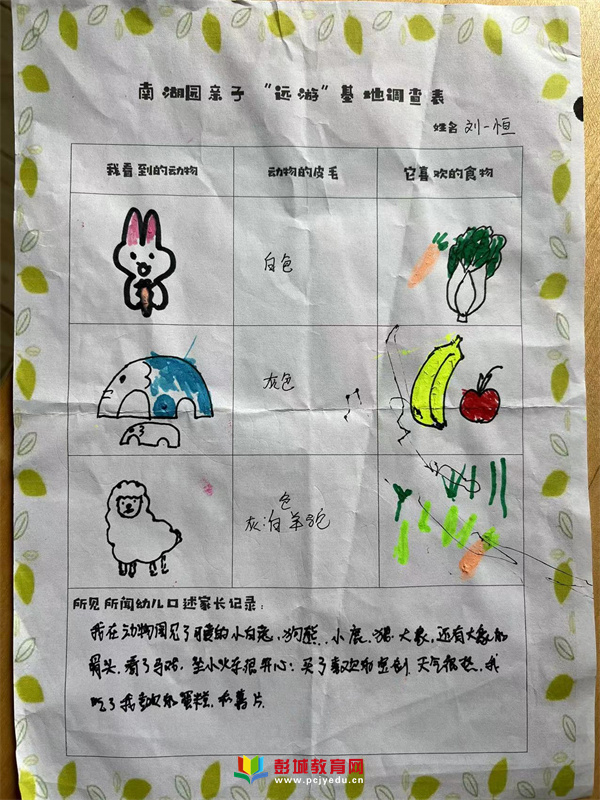 南湖园亲子“远游”基地调查表
姓名 刘一恒
我看到的动物 动物的皮毛 它喜欢的食物
白色
灰色
色
灰白羊毛
所见所闻幼儿口述家长记录：
我在动物园见了 的小白兔、狗熊、小鹿、猪、大象，还有大象的
骨头，看了马戏，坐小火车很开心；买了喜欢的 ，天气很热，我
吃了我喜欢的蛋糕和薯片
彭城教育网
www.pcjyedu.cn